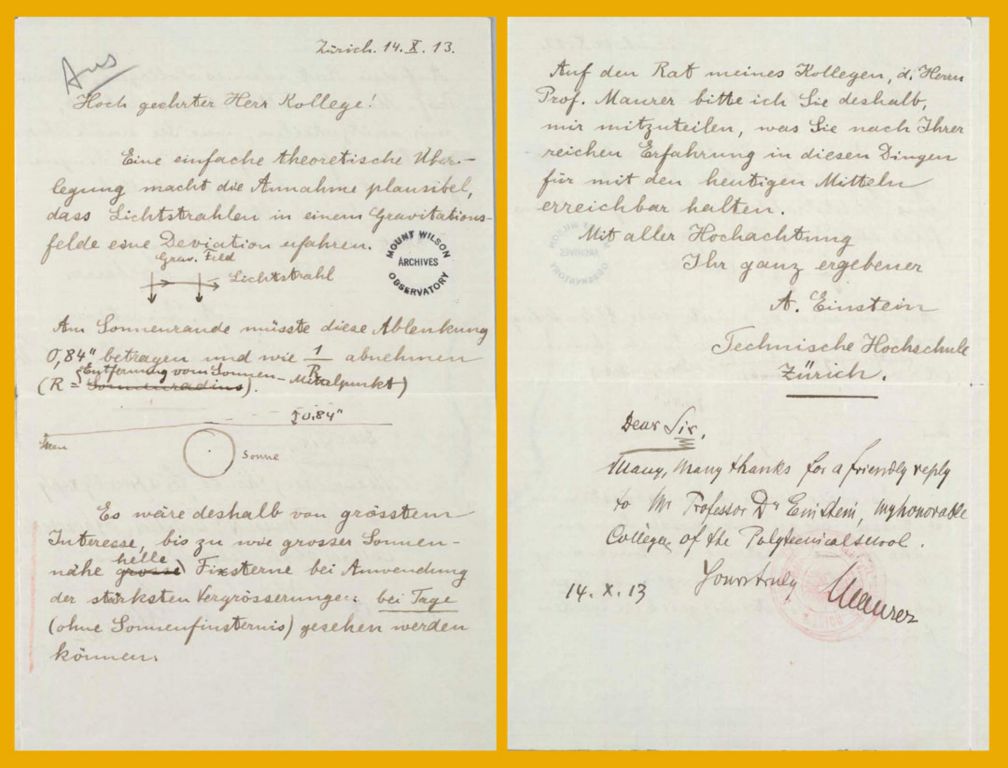 Zürich. 14. X. 13.
Hoch geehrter Herr Kollege!
Eine einfache theoretische Über-
legung macht die Annahme plausibel,
dass Lichtstrahlen in einem Gravitations-
felde eine Deviation erfahren.
MOUNT WILSON
ARCHIVES
OBSERVATORY
Grav. Feld
Lichtstrahl
Am Sonnenrande müsste diese Ablenkung
0,84" betragen und wie 1/R abnehmen
(R = Sonnenradius Entfernung vom Sonnen-Mittelpunkt)
0.84"
Sonne
Es wäre deshalb von grösstem
Interesse, bis zu wie grosser Sonnen-
nähe grosse helle Fixsterne bei Anwendung
der stärksten Vergrösserungen bei Tage
(ohne Sonnenfinsternis) gesehen werden
können.
Auf den Rat meines Kollegen, d. Herrn
Prof. Maurer bitte ich Sie deshalb,
mir mitzuteilen, was Sie nach Ihrer
reichen Erfahrung in diesen Dingen
für mit den heutigen Mitteln
erreichbar halten.
Mit aller Hochachtung
Ihr ganz ergebener
A. Einstein
Technische Hochschule
Zürich.
Dear Sir,
Many, many thanks for a friendly reply
to Mr Professor Dr Einstein, my honorable
Collegue of the Polytechnical school.
14. X. 13 Yours truly Maurer